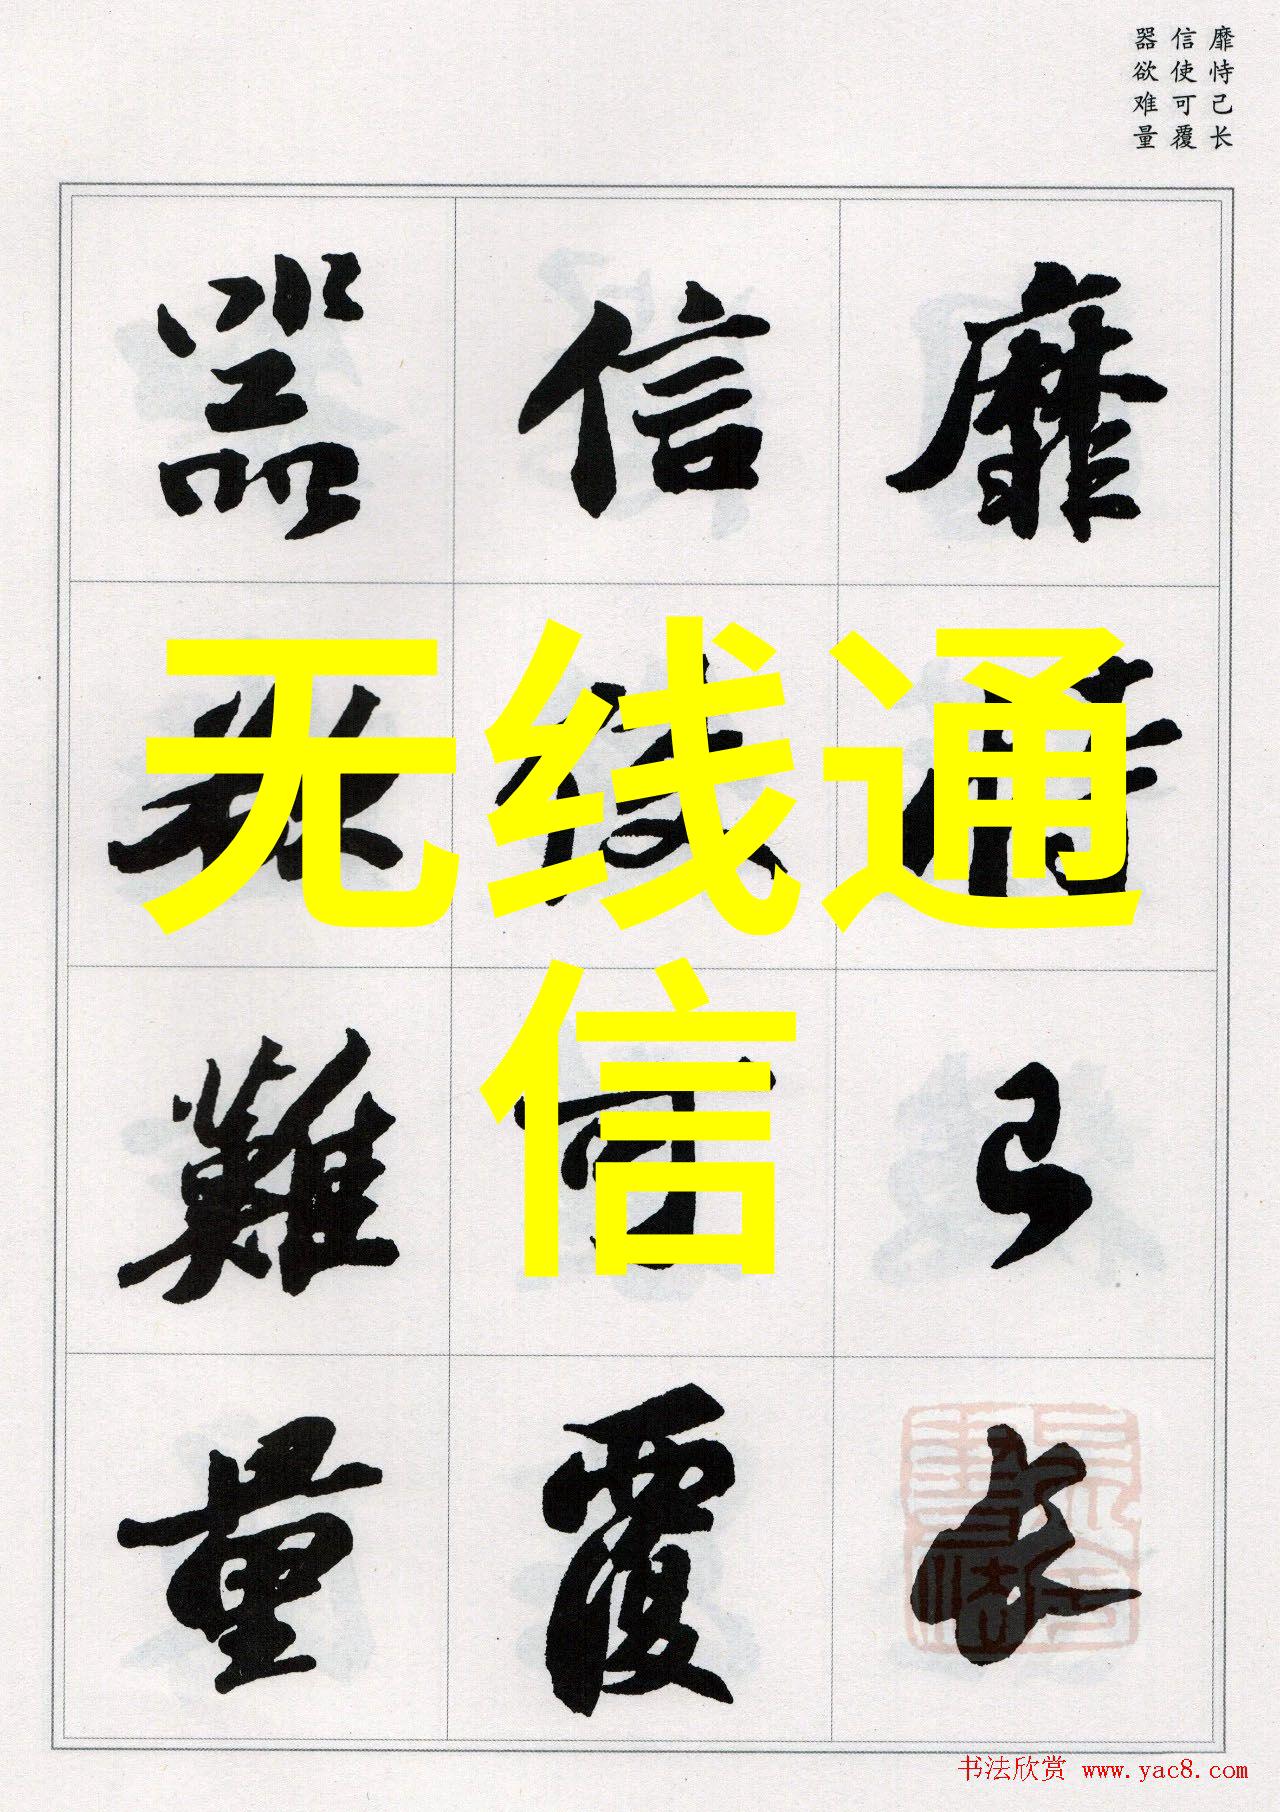 靡恃己长
信使可覆
器欲难量
靡恃己長
信使可覆
器欲難量
无线通
信
书法欣赏 www.yac8.com